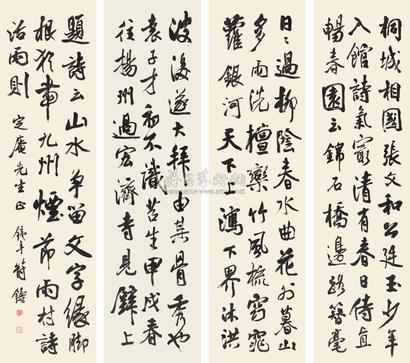 桐城相國張文和廷玉少年
入館詩氣最清有春日侍直
暢春園云錦石橋邊路簪毫
日〻過柳陰春水曲花外暮山
多雨洗檀欒竹風梳窈窕
蘿銀河天下上瀉下界沐洪
波後遂大拜由其骨秀也
袁子才初不識苕生甲戌春
往揚州過宏濟寺見壁上
題詩云山水爭留文字緣腳
根猶帶九州煙節雨村詩
話兩則
定庵先生正